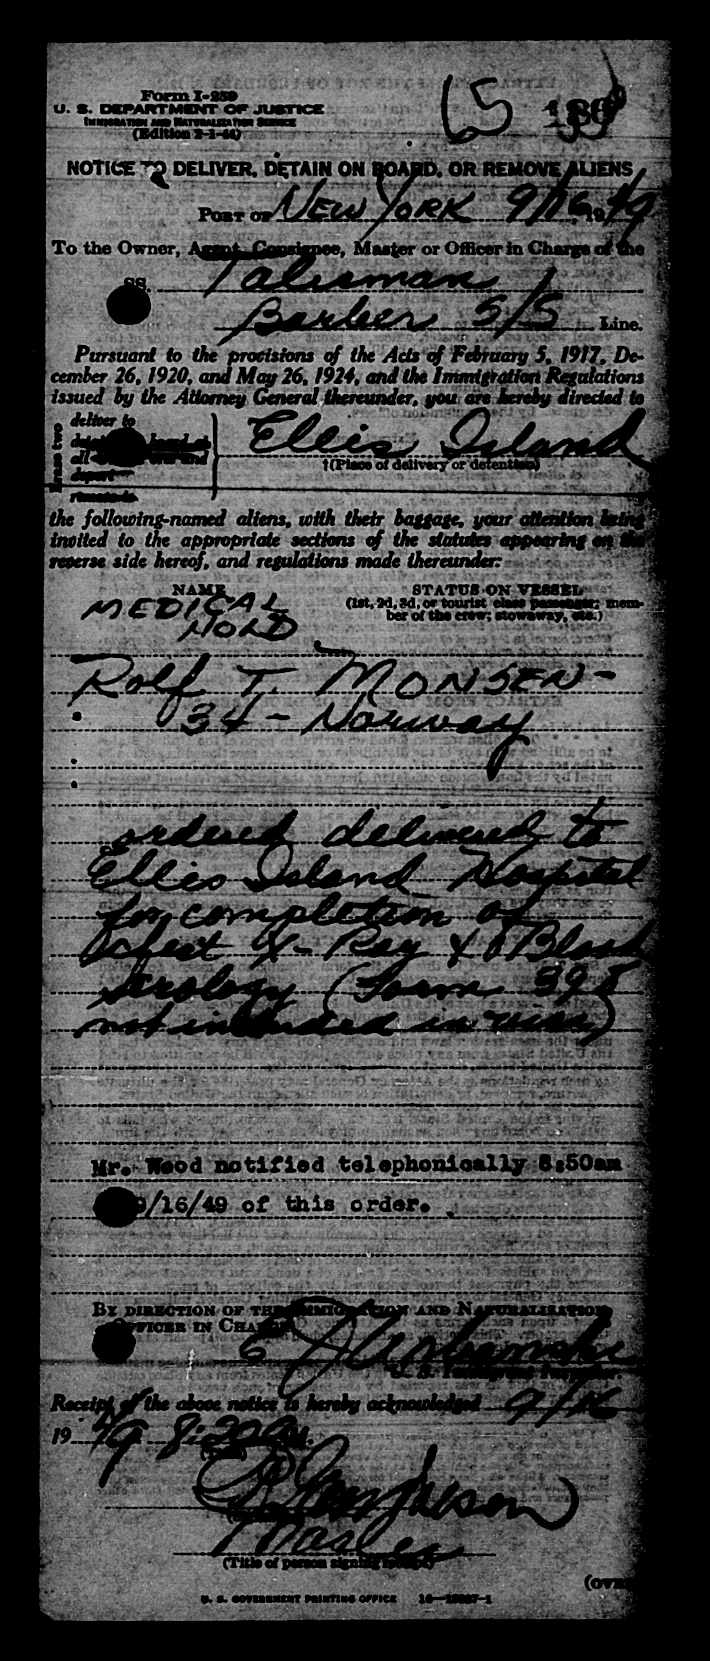 Form I-259
U. S. DEPARTMENT OF JUSTICE
IMMIGRATION AND NATURALIZATION SERVICE
(Edition 2-1-44)
65
NOTICE TO DELIVER, DETAIN ON BOARD, OR REMOVE ALIENS
PORT OF NEW YORK 9/16 1949
To the Owner, Agent, Consignee, Master or Officer in Charge of the
SS. Talisman
Barber S/S Line.
Pursuant to the provisions of the Acts of February 5, 1917, De-
cember 26, 1920, and May 26, 1924, and the Immigration Regulations
issued by the Attorney General thereunder, you are hereby directed to
deliver to
Ellis Island
†(Place of delivery or detention)
the following-named aliens, with their baggage, your attention being
invited to the appropriate sections of the statutes appearing on the
reverse side hereof, and regulations made thereunder:
NAME
STATUS ON VESSEL
(1st, 2d, 3d, or tourist class passenger; mem-
ber of the crew; stowaway, etc.)
MEDICAL
HOLD
Rolf T. MONSEN -
34 - Norway
ordered delivered to
Ellis Island Hospital
for completion of
Chest X-Ray & Blood
Serology (Form 398
not included in visa)
Mr. Wood notified telephonically 8:50am
9/16/49 of this order.
BY DIRECTION OF THE IMMIGRATION AND NATURALIZATION
OFFICER IN CHARGE
U. S.
Receipt of the above notice is hereby acknowledged 9/16
1949 8:20
(Title of person signing receipt)
(OVER)
U. S. GOVERNMENT PRINTING OFFICE